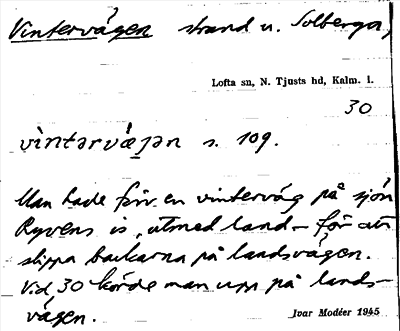 Vintervägen strand u. Solberga,
Lofta sn, N. Tjusts hd, Kalm. l.
30
vìntərvä̀ɡən s. 109.
Man hade förr en vinterväg på sjön
Ryvens is, utmed land – för att
slippa backarna på landsvägen.
Vid 30 körde man upp på lands-
vägen.
Ivar Modéer 1945